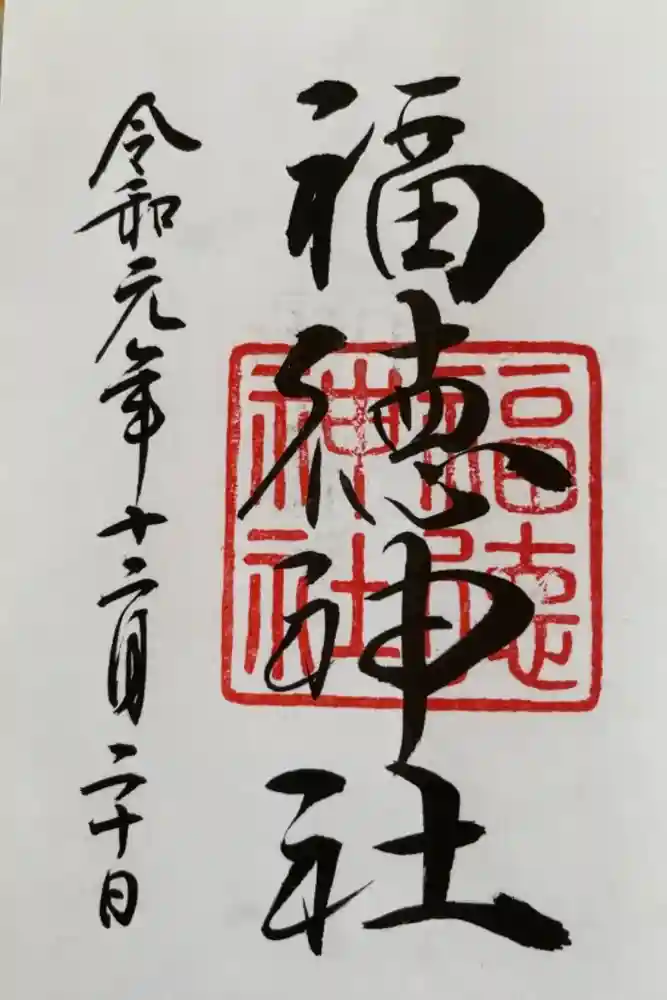 福徳神社
福徳神社
令和元年十二月二十日